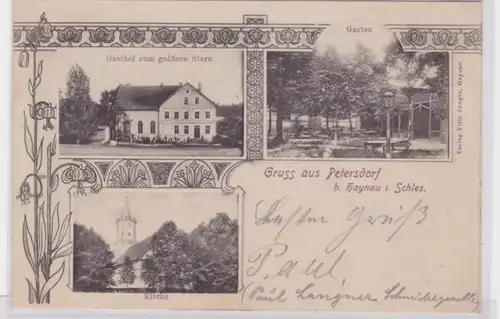 Gasthof zum goldnen Stern
Garten
Verlag Fritz Junger, Haynau
Gruss aus Petersdorf
b. Haynau i. Schles.
Kirche
Besten Gruß
Paul
(Paul Langner, Schneidergeselle)